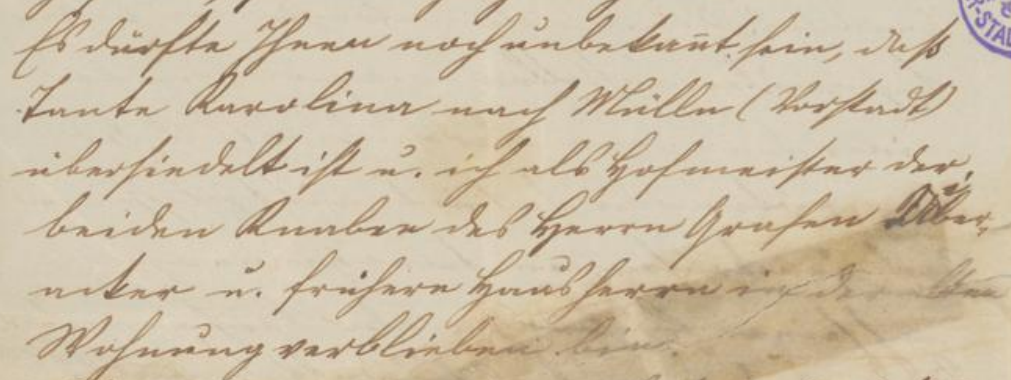 Es dürfte Ihnen noch unbekannt sein, daß
Tante Karolina nach Mülln (Vorstadt)
übersiedelt ist u. ich als Hofmeister der
beiden Knaben des Herrn Grafen Über-
acker u. frühern Hausherrn in der alten
Wohnung verblieben bin.